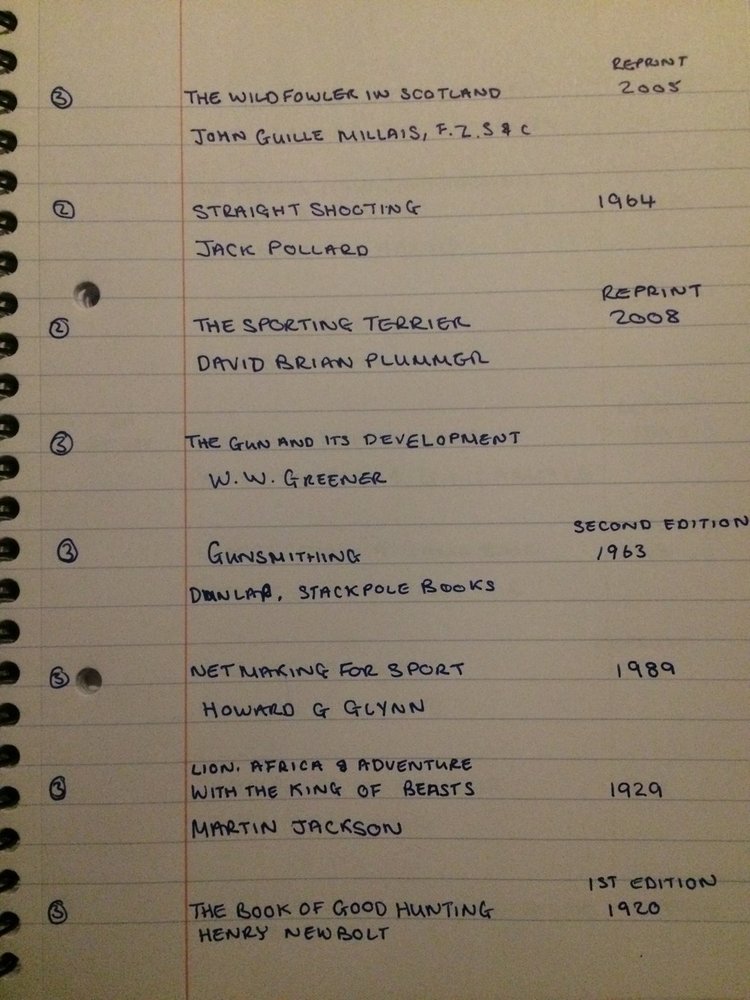 REPRINT
③ THE WILDFOWLER IN SCOTLAND 2005
JOHN GUILLE MILLAIS, F.Z.S & C
② STRAIGHT SHOOTING 1964
JACK POLLARD
REPRINT
② THE SPORTING TERRIER 2008
DAVID BRIAN PLUMMER
③ THE GUN AND ITS DEVELOPMENT
W.W. GREENER
SECOND EDITION
③ GUNSMITHING 1963
DUNLAP, STACKPOLE BOOKS
③ NET MAKING FOR SPORT 1989
HOWARD G GLYNN
LION. AFRICA & ADVENTURE
③ WITH THE KING OF BEASTS 1929
MARTIN JACKSON
1ST EDITION
③ THE BOOK OF GOOD HUNTING 1920
HENRY NEWBOLT